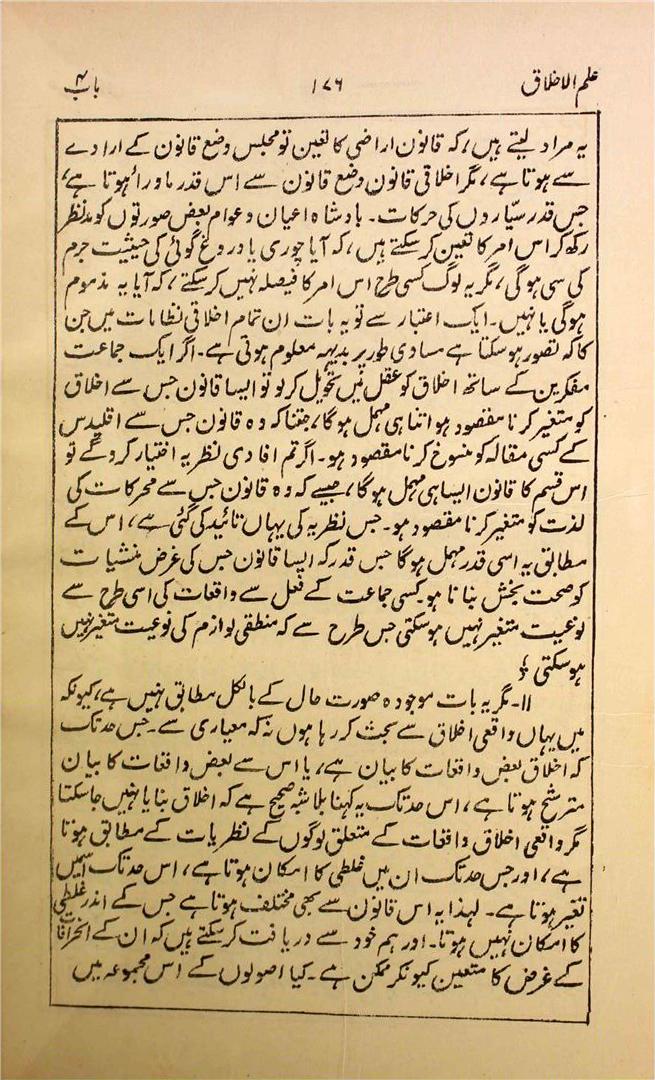 علم الاخلاق ۱۷۶ باب ۴
یہ مراد لیتے ہیں، کہ قانون اراضی کا تعین تو مجلس وضع قانون کے ارادے
سے ہوتا ہے، مگر اخلاقی قانون وضع قانون سے اس قدر ماوراء ہوتا ہے،
جس قدر سیاروں کی حرکات۔ بادشاہ اعیان و عوام بعض صورتوں کو مدنظر
رکھ کر اس امر کا تعین کر سکتے ہیں، کہ آیا چوری یا دروغ گوئی کی حیثیت جرم
کی سی ہوگی، مگر یہ لوگ کسی طرح اس امر کا فیصلہ نہیں کر سکتے، کہ آیا یہ مذموم
ہوگی یا نہیں۔ ایک اعتبار سے تو یہ بات ان تمام اخلاقی نظامات میں جن
کا کہ تصور ہو سکتا ہے مساوی طور پر بدیہہ معلوم ہوتی ہے۔ اگر ایک جماعت
مفکرین کے ساتھ اخلاق کو عقل میں تحویل کر لو تو ایسا قانون جس سے اخلاق
کو متغیر کرنا مقصود ہو اتنا ہی مہمل ہوگا، جتنا کہ وہ قانون جس سے اقلیدس
کے کسی مقالہ کو منسوخ کرنا مقصود ہو۔ اگر تم افادی نظریہ اختیار کرو گے تو
اس قسم کا قانون ایسا ہی مہمل ہوگا، جیسے کہ وہ قانون جس سے محرکات کی
لذت کو متغیر کرنا مقصود ہو۔ جس نظریہ کی یہاں تائید کی گئی ہے، اس کے
مطابق یہ اسی قدر مہمل ہوگا جس قدر کہ ایسا قانون جس کی غرض منشیات
کو صحت بخش بنانا ہو۔ کسی جماعت کے فعل سے واقعات کی اسی طرح سے
نوعیت متغیر نہیں ہو سکتی جس طرح سے کہ منطقی لوازم کی نوعیت متغیر نہیں
ہو سکتی ؛
۱۱۔ مگر یہ بات موجودہ صورت حال کے بالکل مطابق نہیں ہے، کیونکہ
میں یہاں واقعی اخلاق سے بحث کر رہا ہوں نہ کہ معیاری سے۔ جس حد تک
کہ اخلاق بعض واقعات کا بیان ہے، یا اس سے بعض واقعات کا بیان
مترشح ہوتا ہے، اس حد تک یہ کہنا بلاشبہ صحیح ہے کہ اخلاق بنایا نہیں جا سکتا
مگر واقعی اخلاق واقعات کے متعلق لوگوں کے نظریات کے مطابق ہوتا
ہے، اور جس حد تک ان میں غلطی کا امکان ہوتا ہے، اس حد تک اسمیں
تغیر ہوتا ہے۔ لہذا یہ اس قانون سے بھی مختلف ہوتا ہے جس کے اندر غلطی
کا امکان نہیں ہوتا۔ اور ہم خود سے دریافت کر سکتے ہیں کہ ان کے انحرافات
کے غرض کا متعین کیونکر ممکن ہے۔ کیا اصولوں کے اس مجموعہ میں